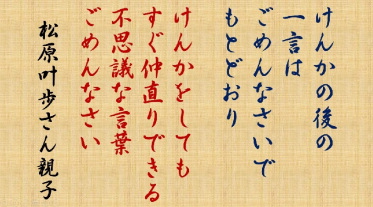 けんかの後の
一言は
ごめんなさいで
もとどおり
けんかをしても
すぐ仲直りできる
不思議な言葉
ごめんなさい
松原叶歩さん親子